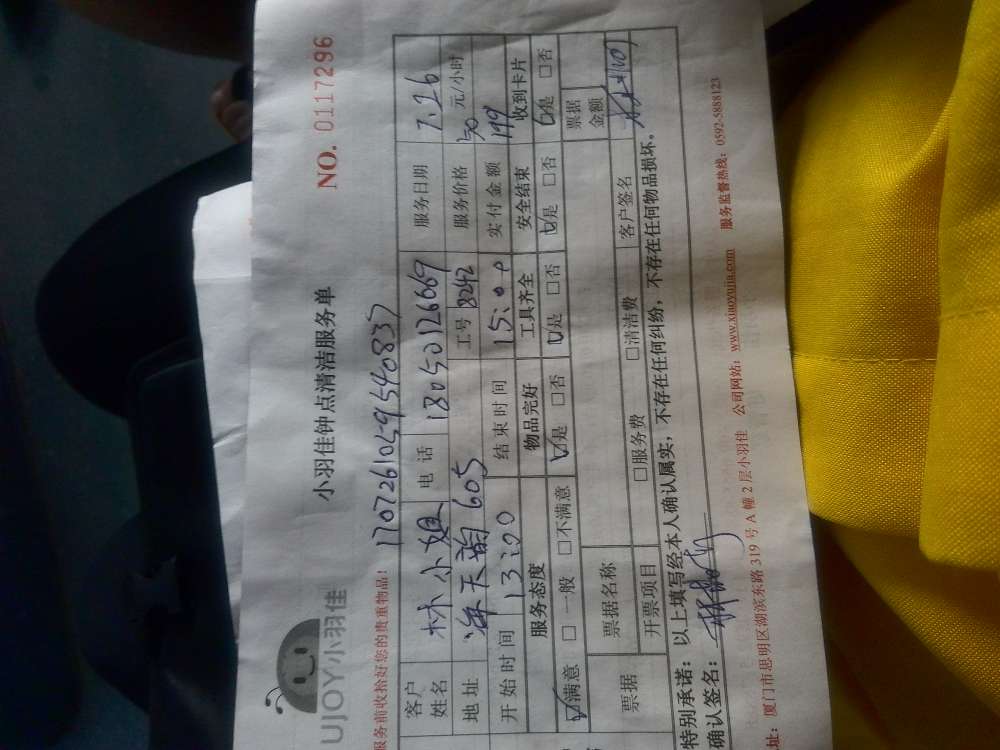 UJOY小羽佳
小羽佳钟点清洁服务单
NO. 0117296
服务前收拾好您的贵重物品!
客户姓名 林小姐 电话 18050126669 服务日期 7.26
地址 海天韵605 工号 8242 服务价格 50元/小时
开始时间 13:00 结束时间 15:00 实付金额 199
服务态度 物品完好 工具齐全 安全结束 收到卡片
☑满意 □一般 □不满意 ☑是 □否 ☑是 □否 ☑是 □否 ☑是 □否
票据 票据名称 票据金额
开票项目 □服务费 □清洁费 客户签名
特别承诺: 以上填写经本人确认属实,不存在任何纠纷,不存在任何物品损坏.
确认签名:
址: 厦门市思明区湖滨东路319号A幢2层小羽佳 公司网站: www.xiaoyujia.com 服务监督热线: 0592-5888123